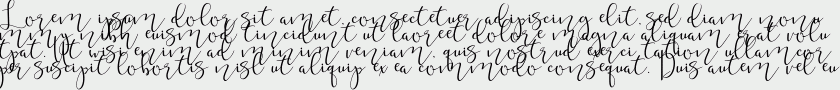 Lorem ipsum dolor sit amet, consectetuer adipiscing elit, sed diam nonu
mmy nibh euismod tincidunt ut laoreet dolore magna aliquam erat volu
tpat. Ut wisi enim ad minim veniam, quis nostrud exerci tation ullamcor
per suscipit lobortis nisl ut aliquip ex ea commodo consequat. Duis autem vel eu